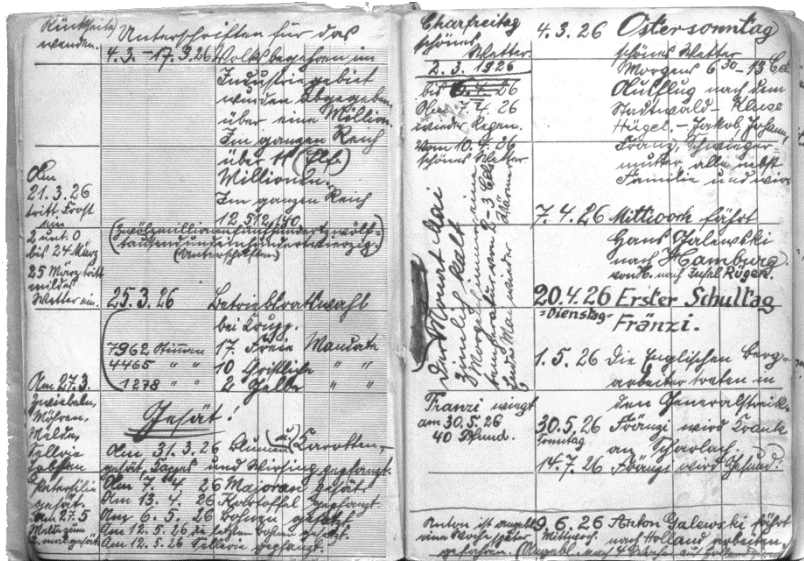 Rückseite
wenden.
Unterschriften für das
4.3.–17.3.26 Volksbegehren im
Industriegebiet
wurden Abgegeben
über eine Million
Im ganzen Reich
über 11 (Elf)
Millionen.
Im ganzen Reich
12 512 140
(Zwölfmillionenfünfhundertzwölf-
tausendundeinhundertvierzig)
(Unterschriften)
Am
21.3.26
tritt Frost
ein
2 unt. 0
bis 24 März
25 März tritt
mildes
Wetter ein.
25.3.26 Betriebsratswahl
bei Krupp.
7962 Stimmen 17 Freie Mandate
4465 " " 10 Cristliche " "
1278 " " 2 Gelbe " "
Gesät!
Am 27.3.
Zwiebeln,
Möhren,
Melde,
Sellerie
Petersilie
gesät.
Am 27.5
2. mal gesät.
Am 31.3.26 Blumen (u.) Karotten,
gesät, Kappes und Wirsing gepflanzt.
Am 7. 4. 26 Majoran gesät.
Am 13. 4. 26 Kartoffel gepflanzt.
Am 6. 5. 26 Bohnen gesetzt.
Am 12.5.26 die letzten Bohnen gesetzt.
Am 12.5.26 Sellerie gepflanzt.
Charfreitag
schönes
Wetter
2. 3. 1926
bis 6.4.26
Am 7.4.26
wieder Regen.
Vom 10.4.26
schönes Wetter.
Der Monat Mai
ziemlich kalt
Morgens immer eine
Temperatur von 2–3 Cels
Ende Mai wieder Wärmer
4.3.26 Ostersonntag
schönes Wetter
Morgens 6 30 – 13 Cel
Ausflug nach dem
Stadtwald – Klause
Hügel, – Jakob, Johann,
Franz, Schwieger-
mutter alle nebst
Familie und wir
7.4.26 Mittwoch fährt
Hans Galewski
nach Hamburg
von H. nach Insel Rügen.
20.4.26 Erster Schultag
=Dienstag- Fränzi.
1.5.26 Die Englischen Berg-
arbeiter treten in
den Generalstreik.
Franzi wiegt
am 30.5.26
40 Pfund.
30.5.26 Fränzi wird krank
Sonntag an Scharlach.
14.7.26 Fränzi wird Gesund.
9.6.26 Anton Galewski fährt
Mittwoch. nach Holland arbeiten
Anton ist angebl.
eine Woche später
gefahren.